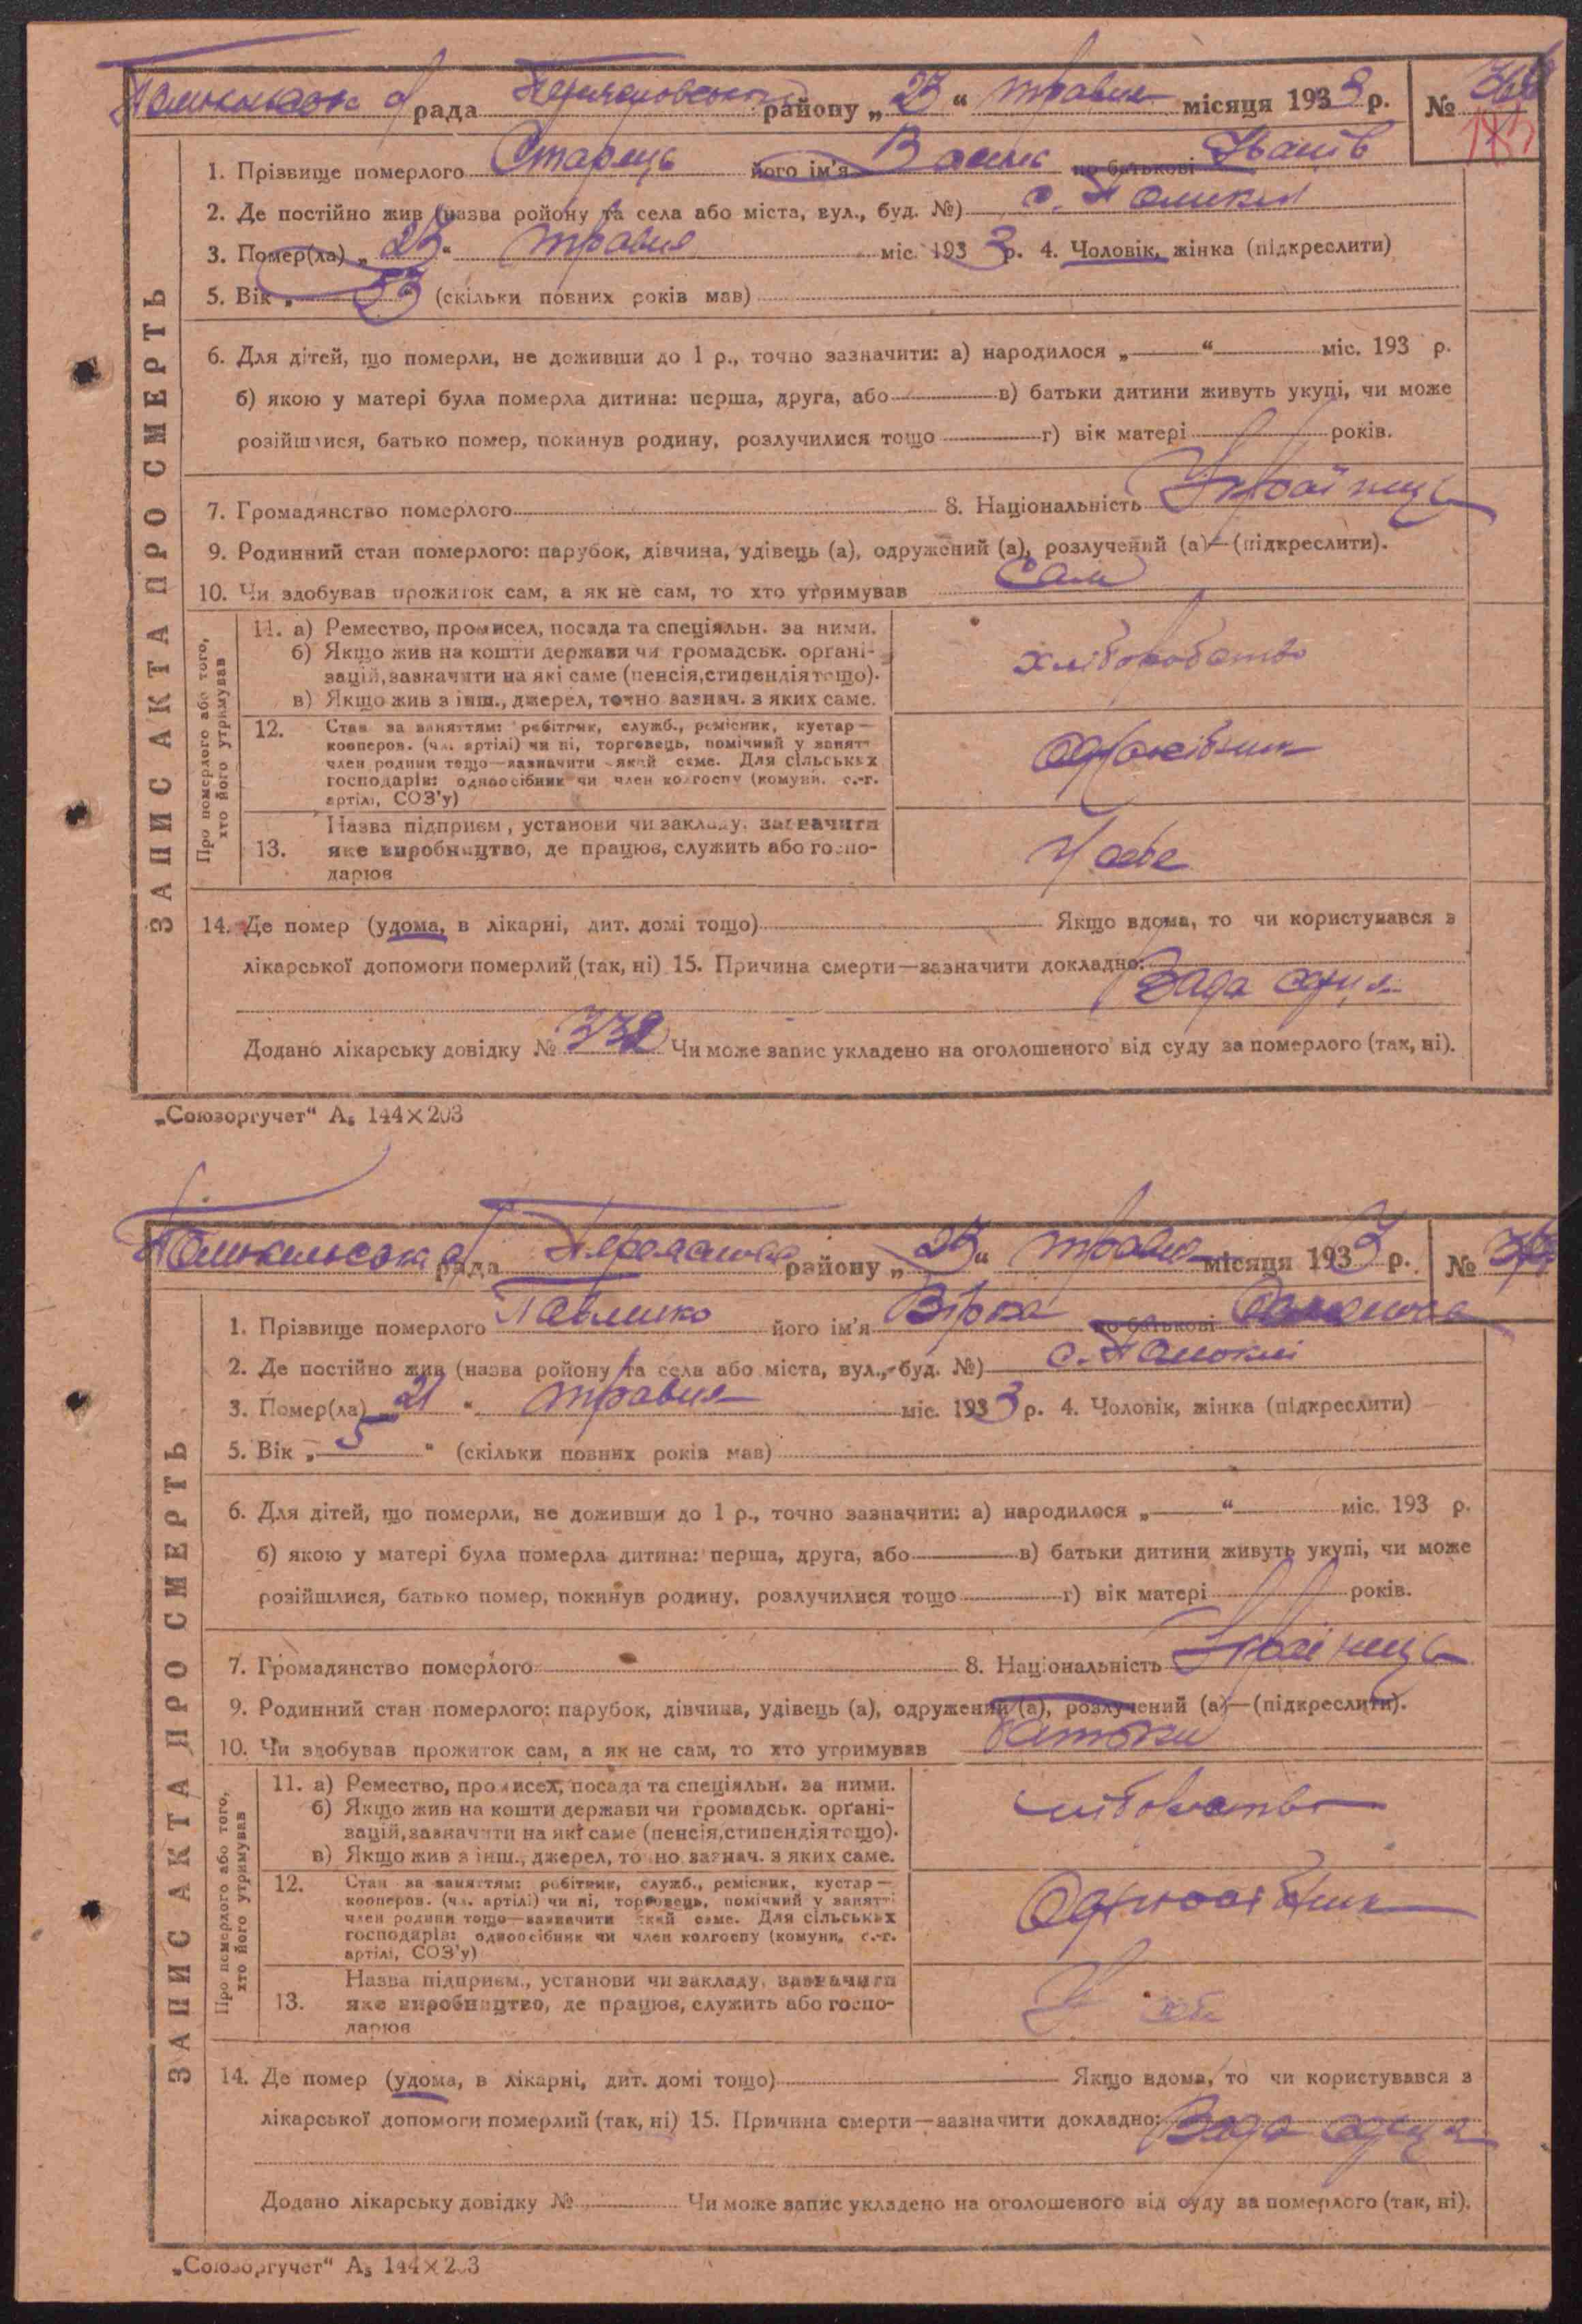 рада Переяславського району „23“ травня місяця 1933 р. №
1. Прізвище померлого Старець його ім'я Василь по батькові Іванів
2. Де постійно жив (назва ройону та села або міста, вул., буд. №) с.
3. Помер(ла) „23“ травня міс. 1933 р. 4. Чоловік, жінка (підкреслити)
5. Вік „53“ (скільки повних років мав)
6. Для дітей, що померли, не доживши до 1 р., точно зазначити: а) народилося „ “ міс. 193 р.
б) якою у матері була померла дитина: перша, друга, або в) батьки дитини живуть укупі, чи може
розійшлися, батько помер, покинув родину, розлучилися тощо г) вік матері років.
7. Громадянство померлого 8. Національність Українець
9. Родинний стан померлого: парубок, дівчина, удівець (а), одружений (а), розлучений (а)—(підкреслити).
10. Чи здобував прожиток сам, а як не сам, то хто утримував Сам
ЗАПИС АКТА ПРО СМЕРТЬ
Про померлого або того, хто його утримував
11. а) Ремество, промисел, посада та спеціяльн. за ними.
б) Якщо жив на кошти держави чи громадськ. орґані-
зацій, зазначити на які саме (пенсія, стипендія тощо).
в) Якщо жив з інш., джерел, точно зазнач. з яких саме.
хліборобство
12. Стан за заняттям: робітник, служб., ремісник, кустар—
кооперов. (чл. артілі) чи ні, торговець, помічний у занятт
член родини тощо—зазначити який саме. Для сільських
господарів: одноосібник чи член колгоспу (комуни, с.-г.
артілі, СОЗ'у)
Одноосібник
Назва підприєм., установи чи закладу, зазначити
13. яке виробництво, де працюв, служить або госпо-
дарюв
У себе
14. Де помер (удома, в лікарні, дит. домі тощо) Якщо вдома, то чи користувався з
лікарської допомоги померлий (так, ні) 15. Причина смерти—зазначити докладно: Вада серця
Додано лікарську довідку № 332 Чи може запис укладено на оголошеного від суду за померлого (так, ні).
„Союзоргучет“ А₅ 144×203
рада Переяславс району „23“ травня місяця 1933 р. №
1. Прізвище померлого Павленко його ім'я по батькові
2. Де постійно жив (назва ройону та села або міста, вул., буд. №) с.
3. Помер(ла) „21“ травня міс. 1933 р. 4. Чоловік, жінка (підкреслити)
5. Вік „5“ (скільки повних років мав)
6. Для дітей, що померли, не доживши до 1 р., точно зазначити: а) народилося „ “ міс. 193 р.
б) якою у матері була померла дитина: перша, друга, або в) батьки дитини живуть укупі, чи може
розійшлися, батько помер, покинув родину, розлучилися тощо г) вік матері років.
7. Громадянство померлого 8. Національність Українець
9. Родинний стан померлого: парубок, дівчина, удівець (а), одружений (а), розлучений (а)—(підкреслити).
10. Чи здобував прожиток сам, а як не сам, то хто утримував Батьки
ЗАПИС АКТА ПРО СМЕРТЬ
Про померлого або того, хто його утримував
11. а) Ремество, промисел, посада та спеціяльн. за ними.
б) Якщо жив на кошти держави чи громадськ. орґані-
зацій, зазначити на які саме (пенсія, стипендія тощо).
в) Якщо жив з інш., джерел, точно зазнач. з яких саме.
хліборобство
12. Стан за заняттям: робітник, служб., ремісник, кустар—
кооперов. (чл. артілі) чи ні, торговець, помічний у занятті
член родини тощо—зазначити який саме. Для сільських
господарів: одноосібник чи член колгоспу (комуни, с.-г.
артілі, СОЗ'у)
Одноосібник
Назва підприєм., установи чи закладу, зазначити
13. яке виробництво, де працюв, служить або госпо-
дарюв
У себе
14. Де помер (удома, в лікарні, дит. домі тощо) Якщо вдома, то чи користувався з
лікарської допомоги померлий (так, ні) 15. Причина смерти—зазначити докладно: Вада серця
Додано лікарську довідку № Чи може запис укладено на оголошеного від суду за померлого (так, ні).
„Союзоргучет“ А₅ 144×203